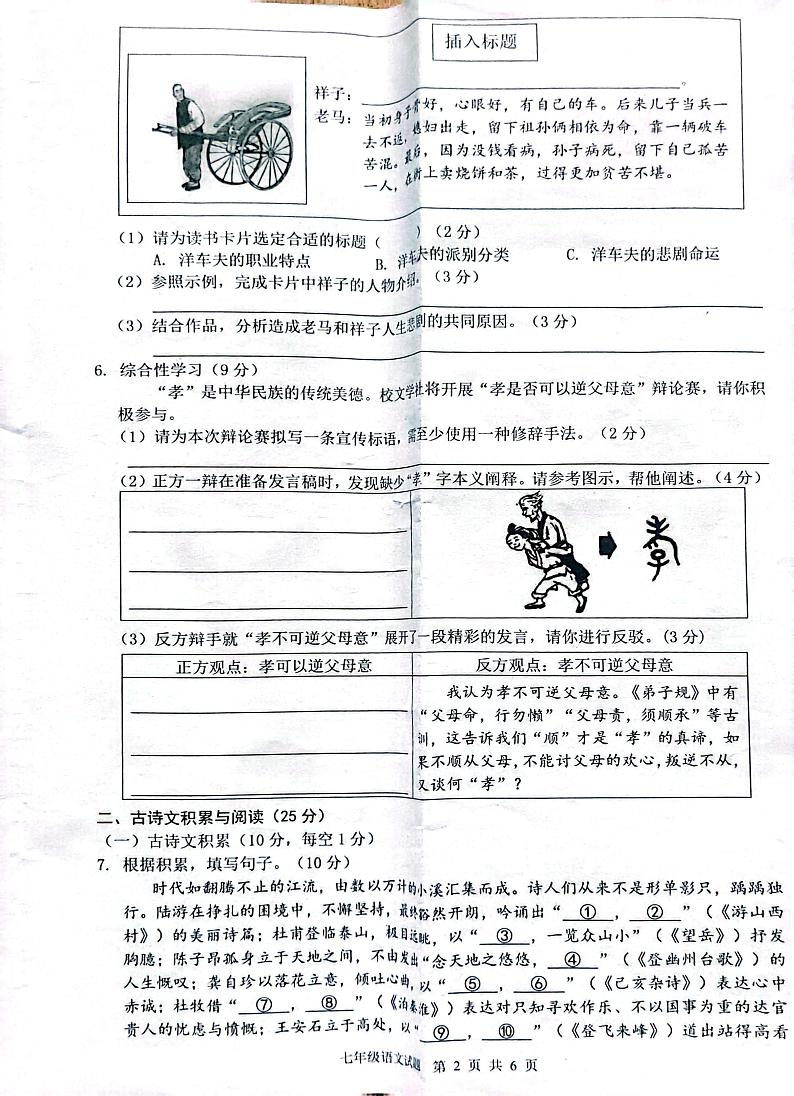 插入标题
祥子：____________________。
老马：当初身子骨好，心眼好，有自己的车。后来儿子当兵一
去不返，媳妇出走，留下祖孙俩相依为命，靠一辆破车
苦混。最后，因为没钱看病，孙子病死，留下自己孤苦
一人，在街上卖烧饼和茶，过得更加贫苦不堪。
（1）请为读书卡片选定合适的标题（　　）（2分）
A. 洋车夫的职业特点　B. 洋车夫的派别分类　C. 洋车夫的悲剧命运
（2）参照示例，完成卡片中祥子的人物介绍。（3分）
（3）结合作品，分析造成老马和祥子人生悲剧的共同原因。（3分）
6. 综合性学习（9分）
“孝”是中华民族的传统美德。校文学社将开展“孝是否可以逆父母意”辩论赛，请你积
极参与。
（1）请为本次辩论赛拟写一条宣传标语，需至少使用一种修辞手法。（2分）
（2）正方一辩在准备发言稿时，发现缺少“孝”字本义阐释。请参考图示，帮他阐述。（4分）
（3）反方辩手就“孝不可逆父母意”展开了一段精彩的发言，请你进行反驳。（3分）
正方观点：孝可以逆父母意　反方观点：孝不可逆父母意
我认为孝不可逆父母意。《弟子规》中有
“父母命，行勿懒”“父母责，须顺承”等古
训，这告诉我们“顺”才是“孝”的真谛，如
果不顺从父母，不能讨父母的欢心，叛逆不从，
又谈何“孝”？
二、古诗文积累与阅读（25分）
（一）古诗文积累（10分，每空1分）
7. 根据积累，填写句子。（10分）
时代如翻腾不止的江流，由数以万计的小溪汇集而成。诗人们从来不是形单影只，踽踽独
行。陆游在挣扎的困境中，不懈坚持，最终豁然开朗，吟诵出“ ① ， ② ”（《游山西
村》）的美丽诗篇；杜甫登临泰山，极目远眺，以“ ③ ，一览众山小”（《望岳》）抒发
胸臆；陈子昂孤身立于天地之间，不由发出“念天地之悠悠， ④ ”（《登幽州台歌》）的
人生慨叹；龚自珍以落花立意，倾吐心曲，以“ ⑤ ， ⑥ ”（《己亥杂诗》）表达心中
赤诚；杜牧借“ ⑦ ， ⑧ ”（《泊秦淮》）表达对只知寻欢作乐、不以国事为重的达官
贵人的忧虑与愤慨；王安石立于高处，以“ ⑨ ， ⑩ ”（《登飞来峰》）道出站得高看
七年级语文试题　第 2 页 共 6 页